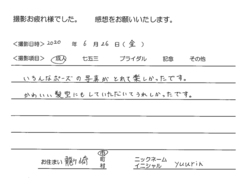 撮影お疲れ様でした。 感想をお願いいたします。
<撮影日時> 2020 年 6 月 26 日 (金)
<撮影項目> 個人 七五三 ブライダル 記念 その他
いろんなポーズの写真がとれて楽しかったです。
かわいい髪型にもしていただいてうれしかったです。
お住まい 龍ヶ崎 市 町 村 ニックネーム イニシャル yuurin